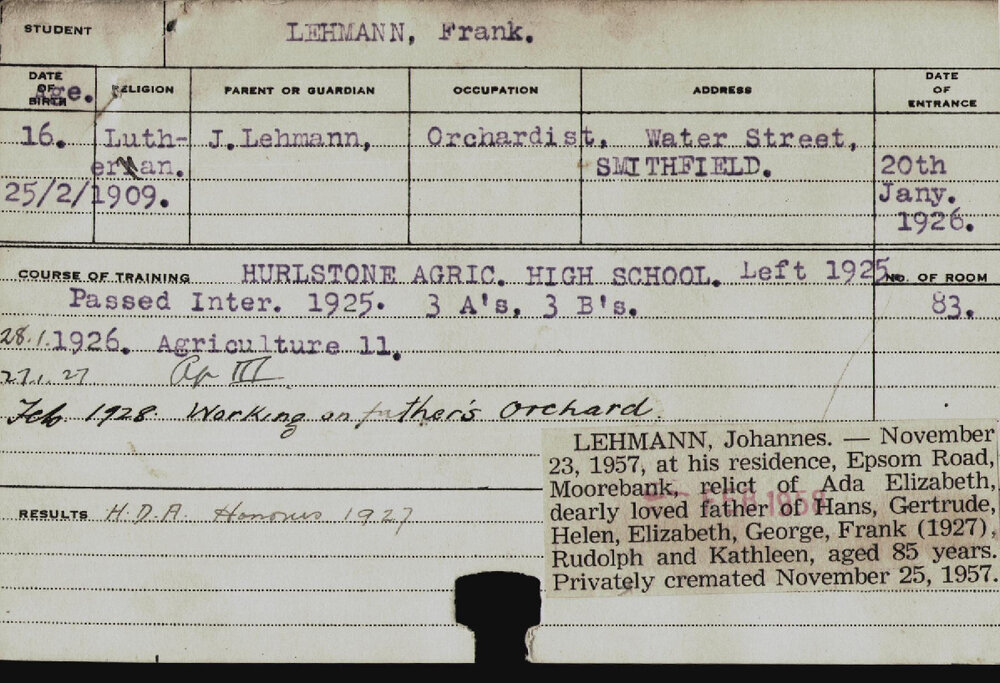 STUDENT LEHMANN, Frank.
DATE OF BIRTH Age. RELIGION PARENT OR GUARDIAN OCCUPATION ADDRESS DATE OF ENTRANCE
16. Luth- J. Lehmann, Orchardist, Water Street,
eran. SMITHFIELD. 20th
25/2/1909. Jany.
1926.
COURSE OF TRAINING HURLSTONE AGRIC. HIGH SCHOOL. Left 1925 NO. OF ROOM
Passed Inter. 1925. 3 A's, 3 B's. 83.
28.1.1926. Agriculture 11.
27.1.27 Ag III
Feb 1928. Working on father's orchard.
LEHMANN, Johannes. — November
23, 1957, at his residence, Epsom Road,
Moorebank, relict of Ada Elizabeth,
dearly loved father of Hans, Gertrude,
Helen, Elizabeth, George, Frank (1927),
Rudolph and Kathleen, aged 85 years.
Privately cremated November 25, 1957.
FEB 1958
RESULTS H.D.A. Honours 1927